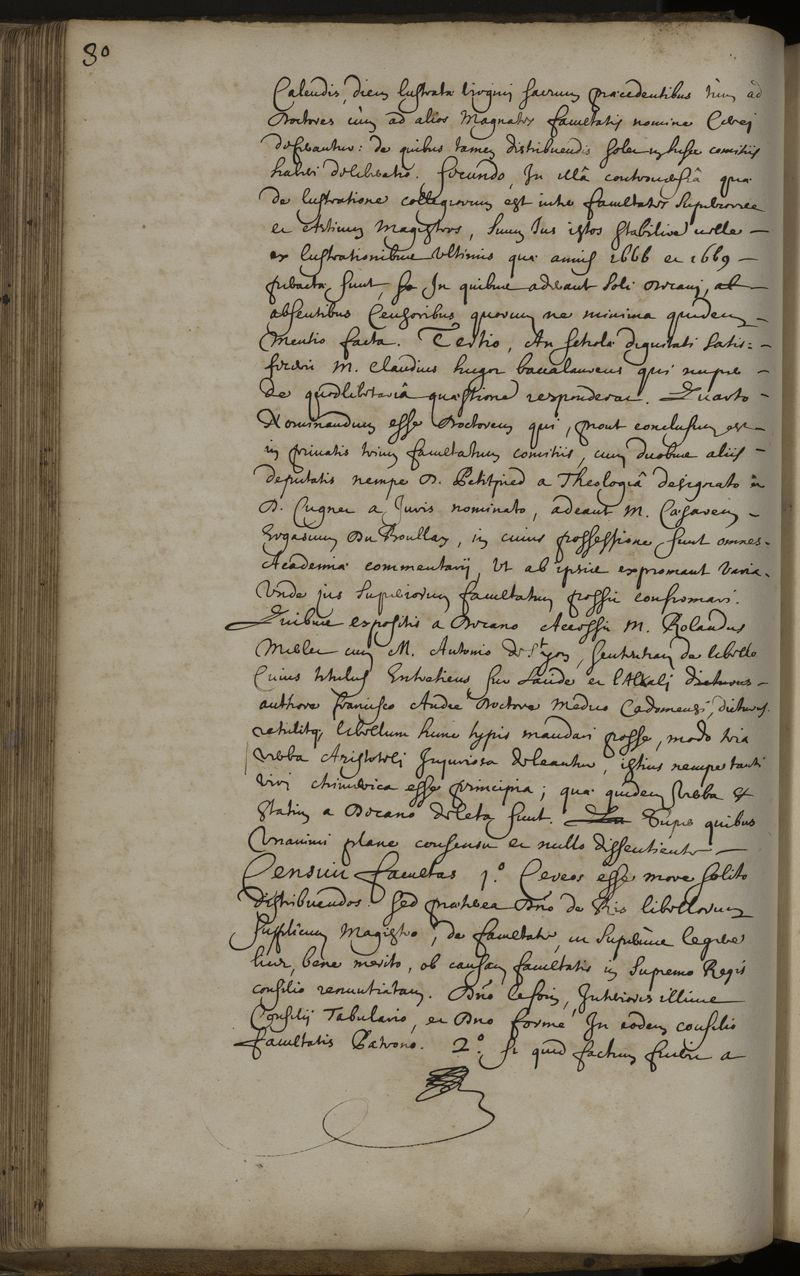 80
Calendis, diem lustratae virginis sacrum praecedentibus tum ad
Doctores cùm ad alios Magnates facultatis nomine Cerei
deferantur: de quibus tamen distribuendis solet in huisce comitiis
haberi deliberatio. secundo, In illâ controuersiâ quae
de lustratione collegiorum est inter facultates superiores
et artium Magistros, suum Jus istos stabilire velle —
ex lustrationibus ultimis quae annis 1666 et 1669 —
peractae sunt, In quibus aderant soli Decani,
absentibus Censoribus quorum ne minima quidem —
Mentio facta. Tertio, An scholae dignitati satis= —
fecerit M. Claudius hugot baccalaureus qui nuper —
de quodlibetariâ quaestione responderat. Quarto —
Nominandum esse Doctorem qui, prout conclusum est —
in privatis trium facultatum comitiis, cum duobus aliis —
deputatis nempe D. Petitpied a Theologiâ designato et
D. Cugnet a Juris nominato, adeant M. Caesarem —
Egasium Du Boullay, in cuius possessione sunt omnes
Academiae commentarij, Ut ab ipsis expromant varia
Unde jus superiorum facultatum possit confirmari.
Quibus expositis a Decano Accessit M. Rolandus
Merlet cum M. Antonio de St. yon, sententiam de libello
Cuius titulus Entretiens sur l'acide et l'Alkali dicturus —
authore francisco André Doctore Medico Cadomensi, dicturus
retulitq; libellum hunc typis mandari posse, modo tria
verba Aristoteli Injuriosa deleantur, istius nempe tanti
viri chimerica esse principia; quae quidem verba
statim a Decano deleta sunt. Super quibus
Unanimi plane consensu et nullo dissentiente —
Censuit facultas 1.º Cereos esse more solito
distribuendos. sed praeterea Dno de Ris libellorum
supplicum Magistro, de facultate, ut superius legere
licet, bene merito, ob causam facultatis in supremo Regis
consilio renuntiatam. Dno lefoin, Interioris illius
Consilij Tabulario, et Dno formé In eodem consilio
facultatis Patrono. 2.º si quid factum fuerit a